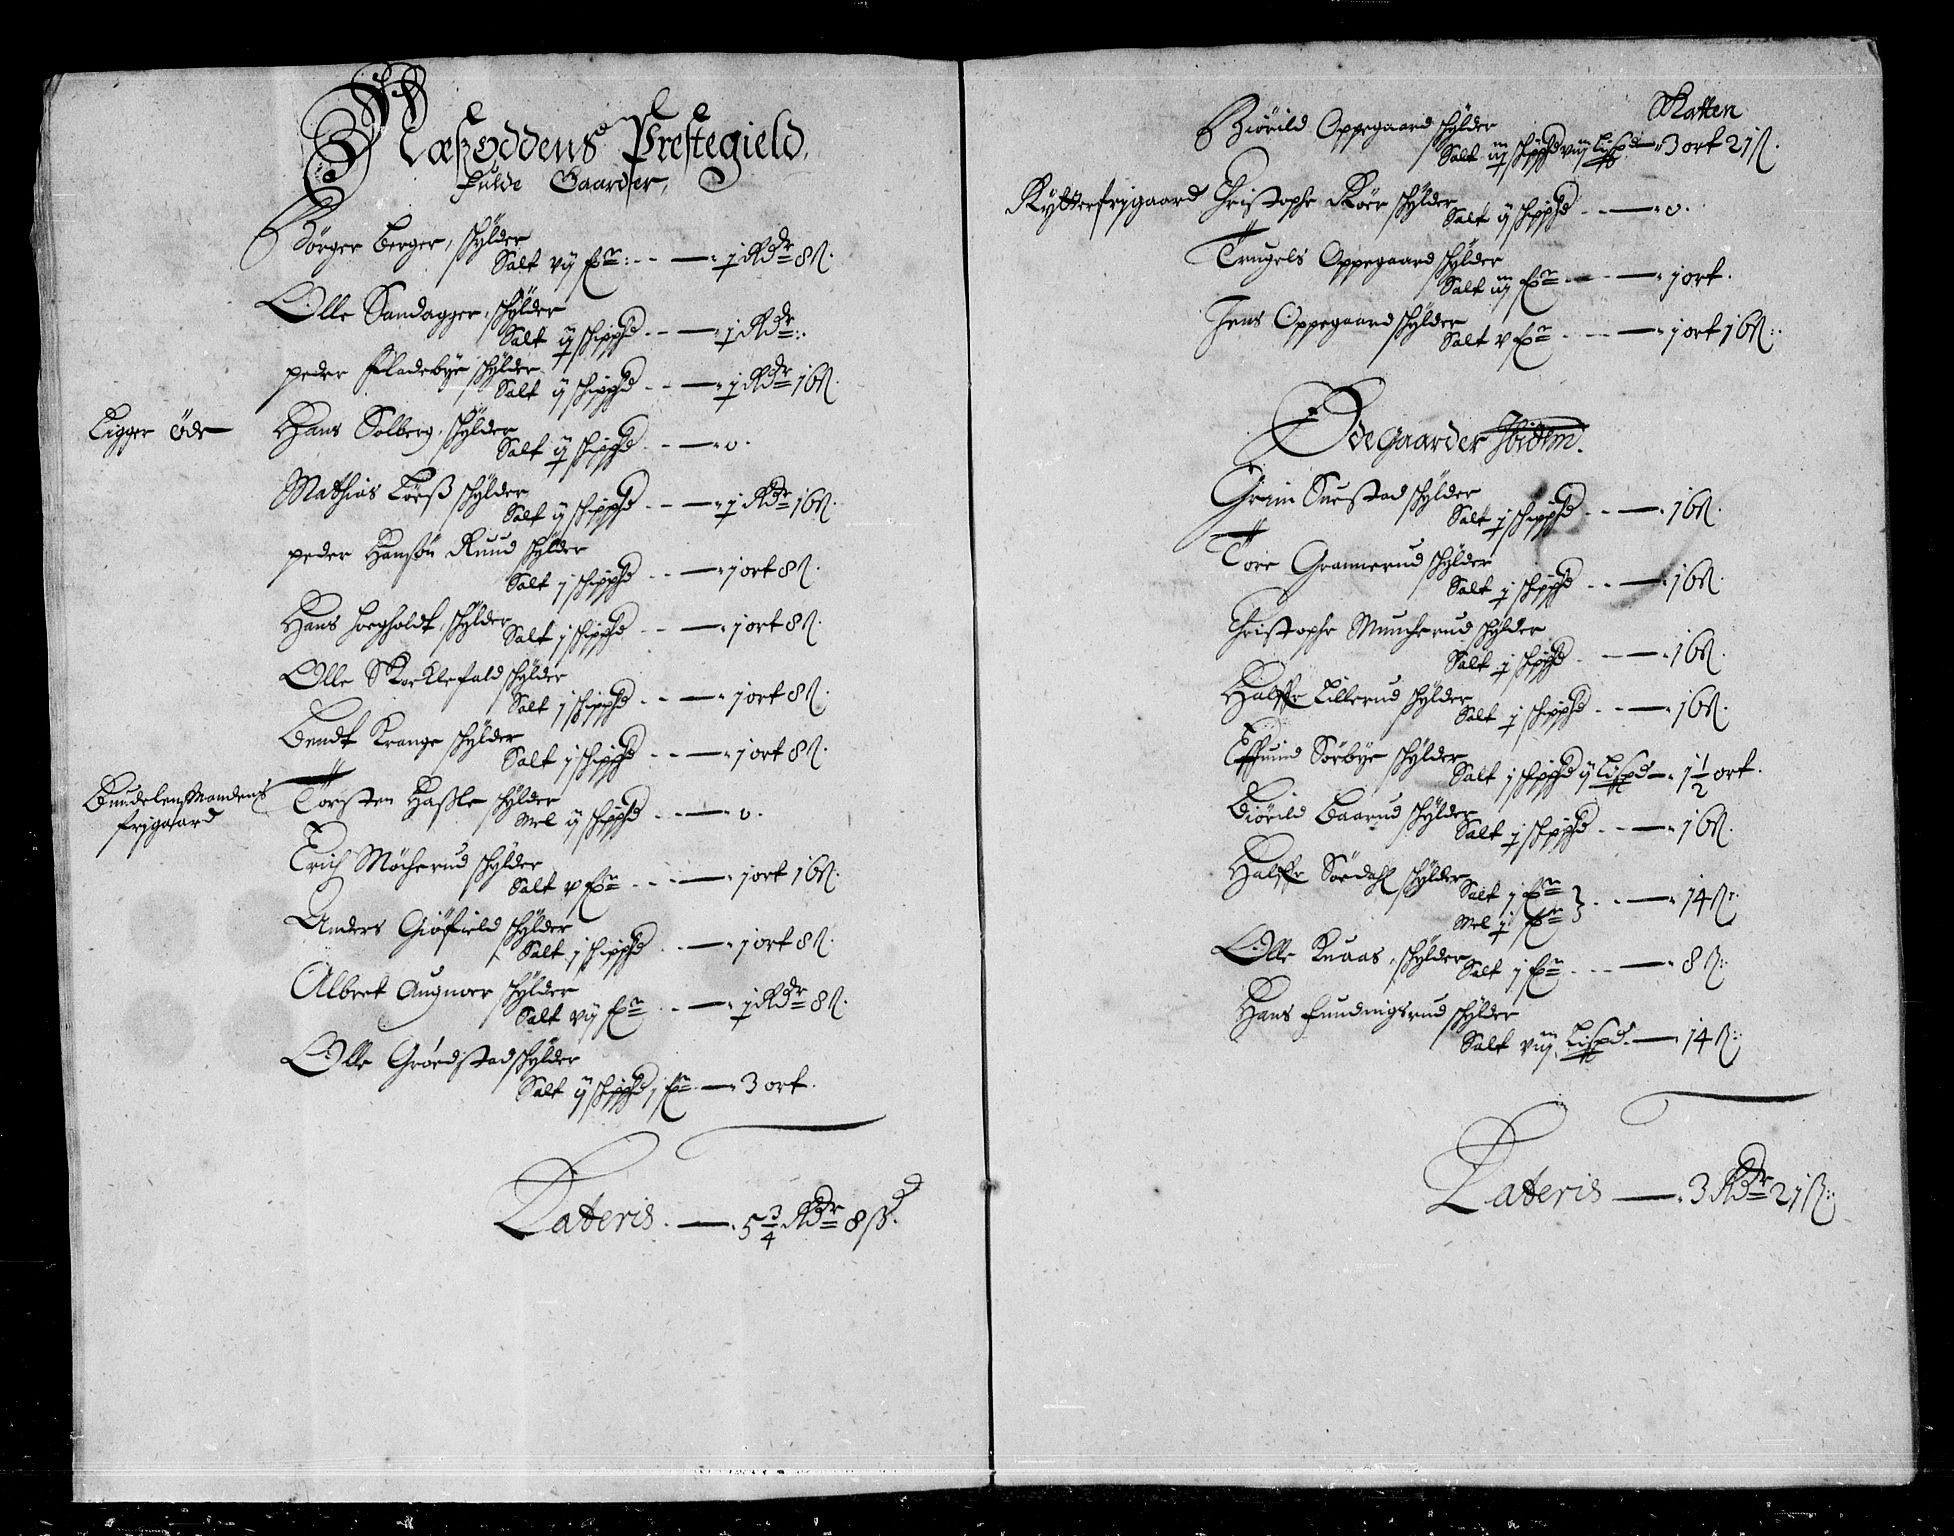 Næsoddens Prestegield.
Fulde Gaarder,
Börger Berger, schylder
Salt vij fr: – – — 1 Rdr 8 ß.
Olle Sandagger, schylder
Salt ij schippd – – — 1 Rdr:
peder Fladebye schylder
Salt ij schippd – – — 1 Rdr 16 ß.
Ligger öde
Hans Solberg, schylder
Salt ij schippd – – — 0.
Mathias Löeß schylder
Salt ij schippd – – — 1 Rdr 16 ß.
peder Hansön Ruud schylder
Salt j schippd – – — 1 ort 8 ß.
Hans Hoegholdt, schylder
Salt j schippd – – — 1 ort 8 ß.
Olle Skoeklefald schylder
Salt j schippd – – — 1 ort 8 ß.
Bendt Krange schylder
Salt j schippd – – — 1 ort 8 ß.
Lensmandens
frygaard
Torsten Haßle schylder
Mel ij schippd – – — 0.
Erich Möcherud schylder
Salt v fr – – — 1 ort 16 ß.
Anders Giöfield schylder
Salt j schippd – – — 1 ort 8 ß.
Albret Augnoer schylder
Salt vij fr – – — 1 Rdr 8 ß.
Olle Gröedstad schylder
Salt ij schippd j fr — 3 ort.
Lateris. — 5 3/4 Rdr 8 ß.
Skatten
Biöröld Oppegaard schylder
Salt iij schippd viij Lispd — 3 ort 21 ß.
Rytterfrygaard
Christopher Röer schylder
Salt ij schippd – – — 0.
Trugels Oppegaard schylder
Salt iij fr – – — 1 ort.
Jens Oppegaard schylder
Salt v fr – – — 1 ort 16 ß.
Ödegaarder Ibidem.
Grim Suestad schylder
Salt j schippd – – — 16 ß.
Tore Grannerud schylder
Salt j schippd – – — 16 ß.
Christopher Muncherud schylder
Salt j schippd – — 16 ß.
Halffr Lillerud schylder
Salt j schippd – – — 16 ß.
Effuind Sörbye schylder
Salt j schippd ij Lispd — 1 1/2 ort.
Biöröld Baarud schylder
Salt j schippd – – — 16 ß.
Halffr Söedahl schylder
Salt j fr
Mel j fr } – – — 14 ß.
Olle Knaas, schylder
Salt j fr – – — 8 ß.
Hans Fundingsrud schylder
Salt viij Lispd. — 14 ß.
Lateris — 3 Rdr 21 ß.